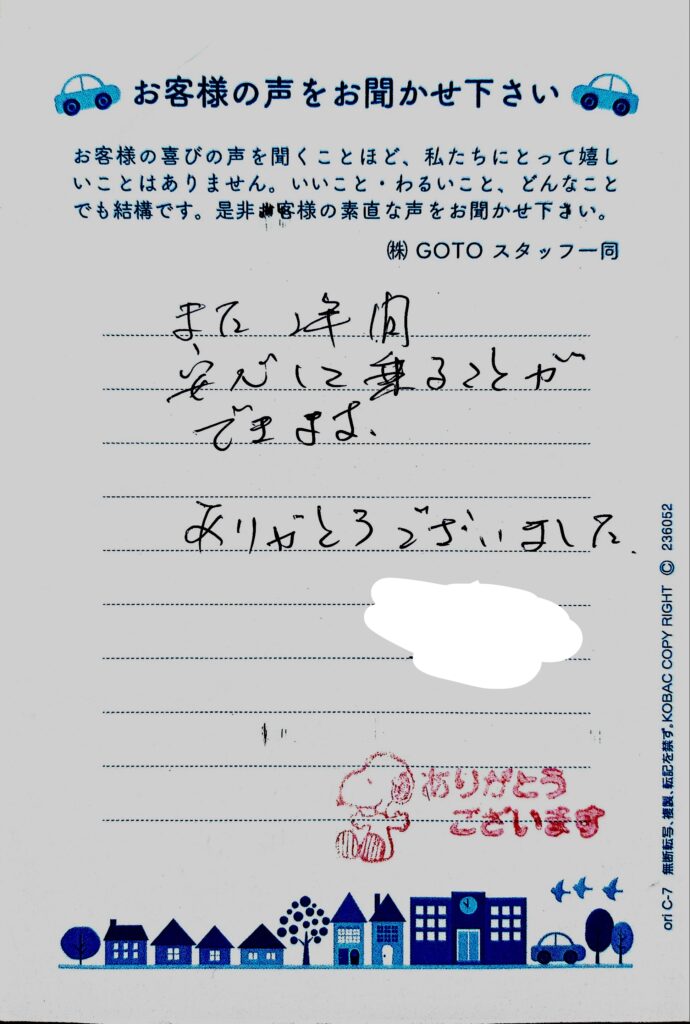 お客様の声をお聞かせ下さい
お客様の喜びの声を聞くことほど、私たちにとって嬉し
いことはありません。いいこと・わるいこと、どんなこと
でも結構です。是非お客様の素直な声をお聞かせ下さい。
㈱ GOTO スタッフ一同
また 2年間
安心して乗ることが
できます。
ありがとうございました。
ありがとう
ございます
ori C-7 無断転写、複製、転記を禁ず。KOBAC COPY RIGHT © 236052